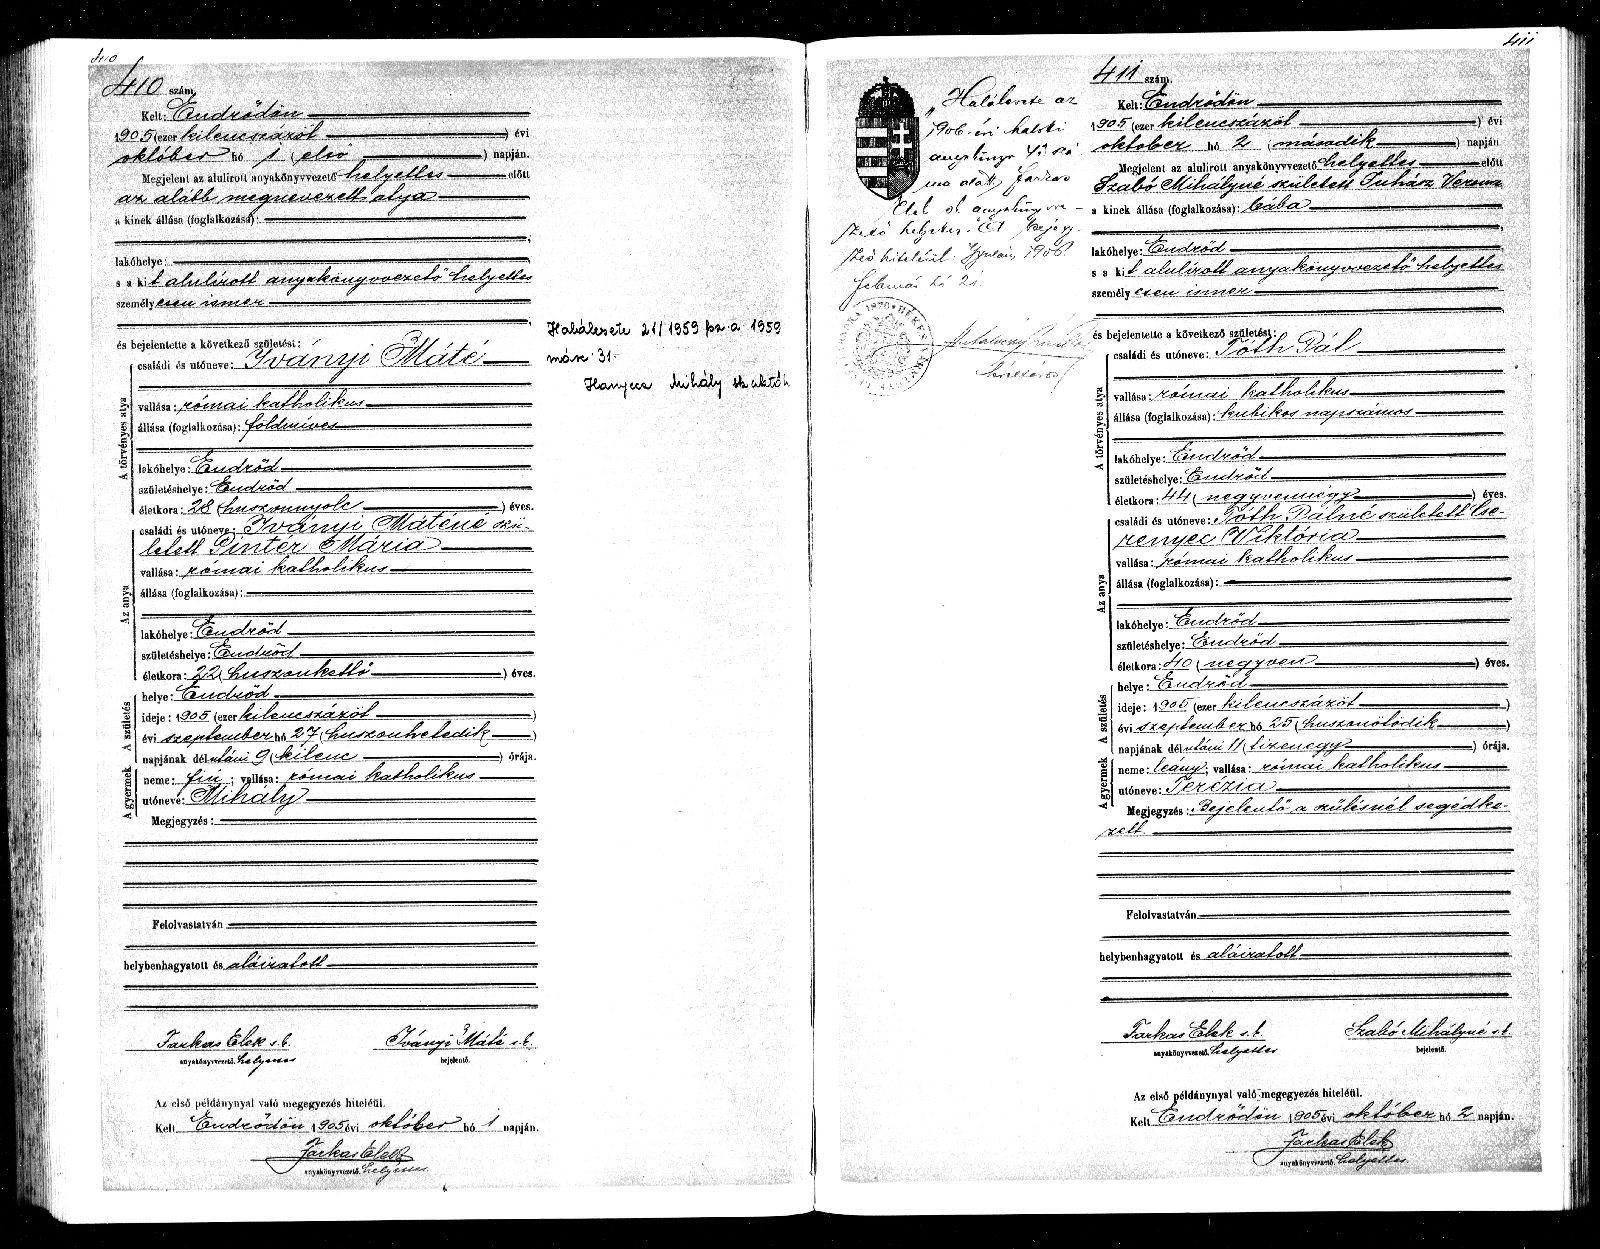 410
410 szám.
Kelt: Endrődön
1905 (ezer kilencszázöt ) évi
október hó 1 (első ) napján.
Megjelent az alulirott anyakönyvvezető helyettes előtt
az alább megnevezett atya
a kinek állása (foglalkozása):
lakóhelye:
s a kit alulírott anyakönyvvezető helyettes
személyesen ismer
és bejelentette a következő születést:
A törvényes atya
családi és utóneve: Iványi Máté
vallása: római katholikus
állása (foglalkozása): földmíves
lakóhelye: Endrőd
születéshelye: Endrőd
életkora: 28 (huszonnyolc ) éves.
Az anya
családi és utóneve: Iványi Máténé szü-
letett Pintér Mária
vallása: római katholikus
állása (foglalkozása):
lakóhelye: Endrőd
születéshelye: Endrőd
életkora: 22 (huszonkettő ) éves.
A születés
helye: Endrőd
ideje: 1905 (ezer kilencszázöt )
évi szeptember hó 27 (huszonhetedik )
napjának délutáni 9 (kilenc ) órája.
A gyermek
neme: fiu; vallása: római katholikus
utóneve: Mihály
Megjegyzés:
Felolvastatván
helybenhagyatott és aláiratott
Farkas Elek s.k. Iványi Máté s.k.
anyakönyvvezető. helyettes bejelentő.
Az első példánynyal való megegyezés hiteléül.
Kelt Endrődön 1905 évi október hó 1 napján.
Farkas Elek
anyakönyvvezető. helyettes
Halálesete 21/1959 fsz. a 1959
márc 31.
Hanyecz Mihály
411
"Halálesete az
1906. évi halotti
szá-
ma alatt Farkas
Elek
helyettes.
hiteléül. Gyulán, 1906.
Február hó 21.
411 szám.
Kelt: Endrődön
1905 (ezer kilencszázöt ) évi
október hó 2 (második ) napján
Megjelent az alulirott anyakönyvvezető helyettes előtt
Szabó Mihályné született Juhász Verona
a kinek állása (foglalkozása): bába
lakóhelye: Endrőd
s a kit alulírott anyakönyvvezető helyettes
személyesen ismer
és bejelentette a következő születést:
A törvényes atya
családi és utóneve: Tóth Pál
vallása: római katholikus
állása (foglalkozása): kubikos napszámos
lakóhelye: Endrőd
születéshelye: Endrőd
életkora: 44 (negyvennégy ) éves.
Az anya
családi és utóneve: Tóth Pálné született Cse-
renyec Viktória
vallása: római katholikus
állása (foglalkozása):
lakóhelye: Endrőd
születéshelye: Endrőd
életkora: 40 (negyven ) éves.
A születés
helye: Endrőd
ideje: 1905 (ezer kilencszázöt )
évi szeptember hó 25 (huszonötödik )
napjának délutáni 11 (tizenegy ) órája.
A gyermek
neme: leány; vallása: római katholikus
utóneve: Terézia
Megjegyzés: Bejelentő a szülésnél segédke-
zett.
Felolvastatván
helybenhagyatott és aláiratott
Farkas Elek s.k. Szabó Mihályné s.k.
anyakönyvvezető. helyettes bejelentő.
Az első példánynyal való megegyezés hiteléül.
Kelt Endrődön 1905 évi október hó 2 napján.
Farkas Elek
anyakönyvvezető. helyettes